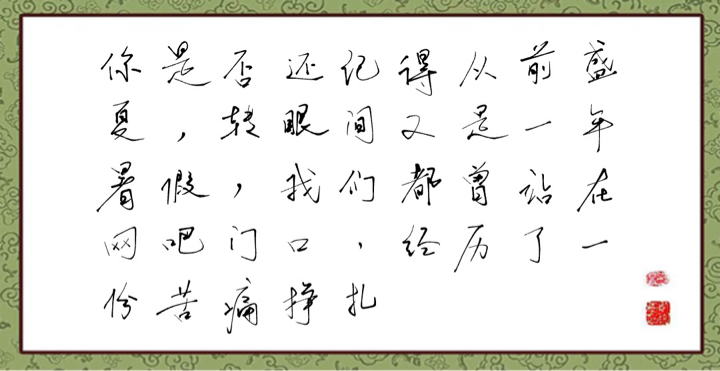 你是否还记得从前盛
夏，转眼间又是一年
暑假，我们都曾站在
网吧门口，经历了一
份苦痛挣扎